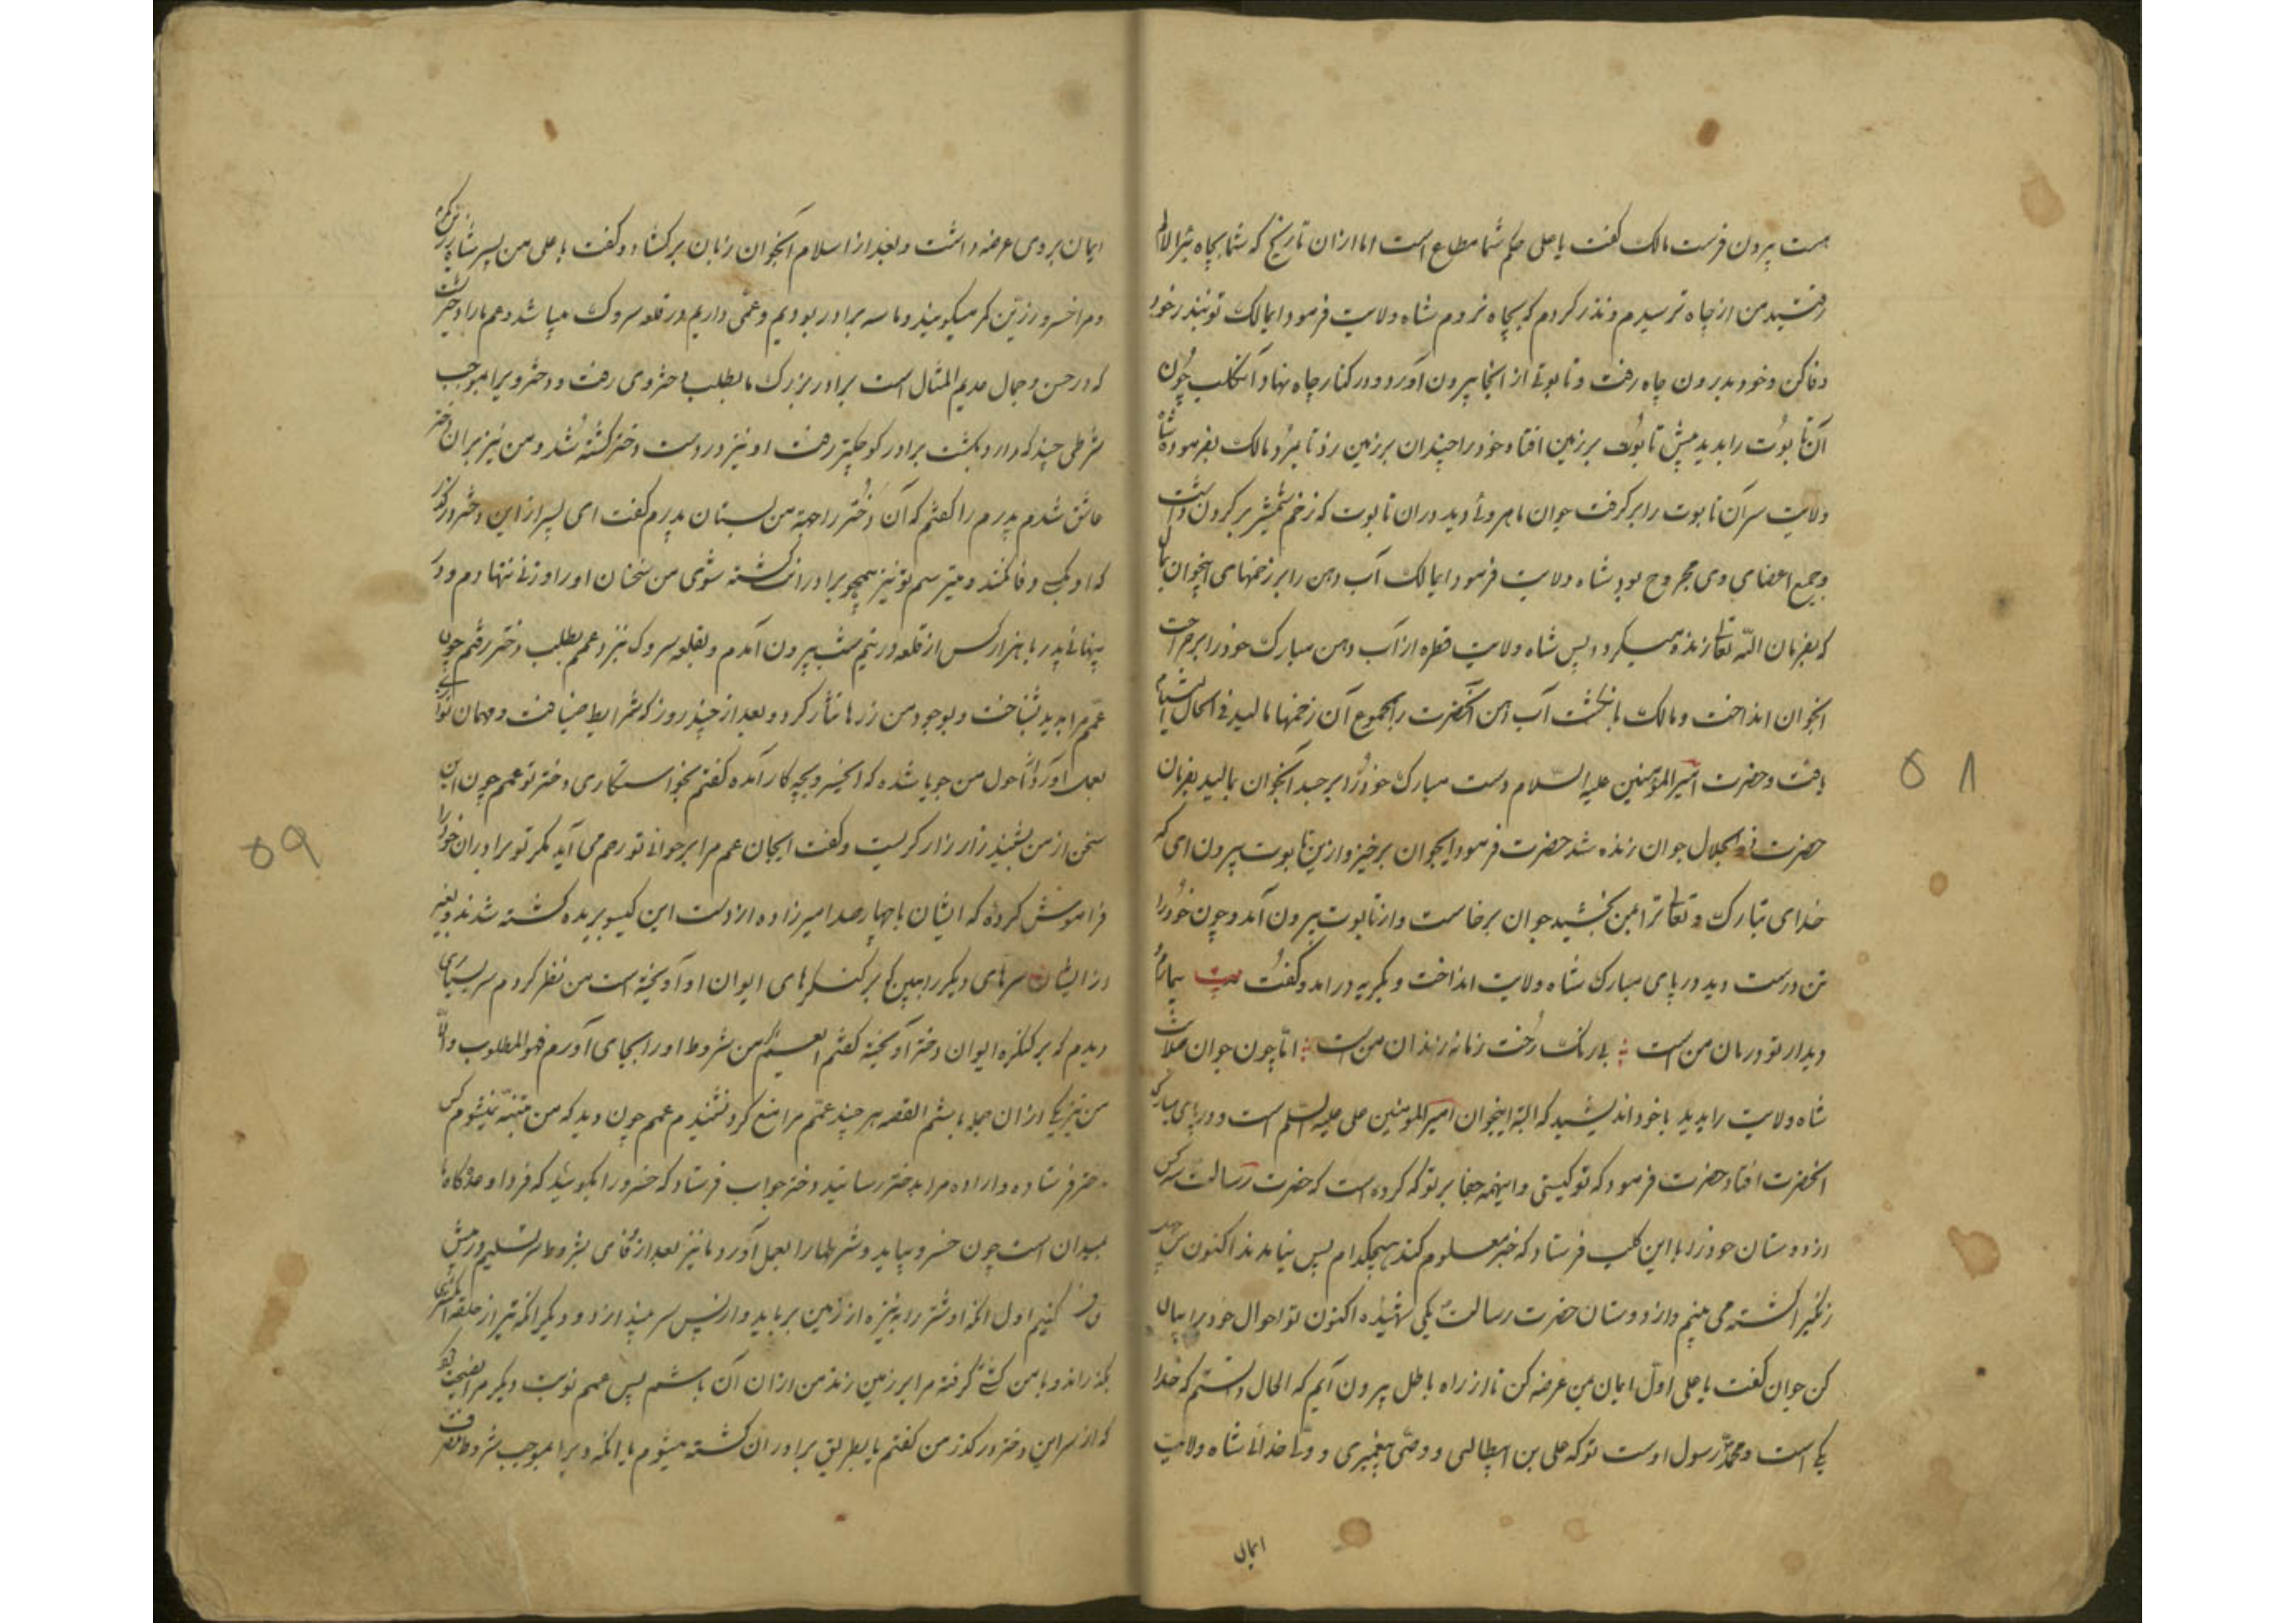 هست بیرون فرست مالک گفت یا علی حکم شما مطاع است اما ازان تاریخ که شما بچاه بئرالالم
رفتید من از چاه ترسیدم و نذر کردم که بچاه نروم شاه ولایت فرمود ایمالک تو بنذر خود
وفا کن و خود بدرون چاه رفت و تابوتی از انجا بیرون آورد و در کنار چاه نهاد آن کلب چون
آن تابوت را بدید پیش تابوت بر زمین افتاد و خود را چندان بر زمین زد تا بمرد مالک بفرموده شاه
ولایت سر آن تابوت را برگرفت جوان ماهروئی دید دران تابوت که زخم شمشیر بر گردن داشت
و جمیع اعضای وی مجروح بود شاه ولایت فرمود ایمالک آب دهن را بر زخمهای اینجوان بمال
که بفرمان الله تعالی زنده میگردد پس شاه ولایت قطره از آب دهن مبارک خود را بر جراحت
انجوان انداخت و مالک با نگشت آب دهن آنحضرت را بمجموع آن زخمها مالید فی الحال التیام
یافت و حضرت امیرالمؤمنین علیه السلام دست مبارک خود را بر جسد آنجوان بمالید بفرمان
حضرت ذو الجلال جوان زنده شد حضرت فرمود ایجوان برخیز و ازین تابوت بیرون ای که
خدای تبارک و تعالی ترا بمن بخشید جوان برخاست و از تابوت بیرون آمد و چون خود را
تن درست دید در پای مبارک شاه ولایت انداخت و بگریه درامد و گفت بیت بیمارم
دیدار تو درمان من است بی رنگ رخت زمانه زندان من است اما چون جوان صلابت
شاه ولایت را بدید با خود اندیشید که البته اینجوان امیرالمومنین علی علیه السلم است و در پای مبارک
انحضرت افتاد حضرت فرمود که تو کیستی و اینهمه جفا بر تو که کرده است که حضرت رسالت سه کس
از دوستان خود را با این کلب فرستاد که خبر معلوم کند هیچکدام پس نیامدند اکنون
زنگیرا کشته می بینم و از دوستان حضرت رسالت یکی شهیده اکنون تو احوال خود را بیان
کن جوان گفت یا علی اول ایمان بمن عرضه کن تا از راه باطل بیرون آیم که الحال دانستم که خدا
یکی است و محمد رسول اوست تو که علی بن ابیطالبی و وصی پیغمبری و ولی خدائی شاه ولایت
ایمان
۵۸
ایمان بروی عرضه داشت و بعد از اسلام آنجوان زبان برکشاد و گفت یا علی من پسر شاپور
و مرا خسرو زرین کمر میگویند و ما سه برادر بودیم و عمی داریم در قلعه سروک میباشد و عم ما را دختریست
که در حسن و جمال عدیم المثال است برادر بزرگ ما بطلب دختر وی رفت و دختر ویرا بموجب
شرطی چند که دارد بکشت برادر کوچکتر رفت او نیز در دست دختر کشته شد و من نیز بران دختر
عاشق شدم پدرم را گفتم که آن دختر را جهة من بستان پدرم گفت ای پسر از این دختر درگذر
که او بکسی وفا نکند و میترسم تو نیز همچو برادرانت کشته شوی من سخنان او را وزنی ننهادم و در
پنهانی پدر با هزار کس از قلعه در نیم شب بیرون آمدم و بقلعه سروک نزد عمم بطلب دختر رفتم چون
عمم مرا بدید بشناخت و بوجود من زرها نثار کرد و بعد از چند روز که شرایط ضیافت و مهمان نوازی
بعمل آورد از احول من جویا شده که ایخسرو بچه کار آمده گفتم بخواستکاری دختر تو عمم چون این
سخن از من بشنید زار زار گریست و گفت ایجان عم مرا بر جوانی تو رحم می آید مگر تو برادران خود را
فراموش کرده که ایشان با چهار صد امیرزاده از دست این گیسو بریده کشته شدند و بغیر
از ایشان سرهای دیگر را ببین که بر کنگرهای ایوان او آویخته است من نظر کردم سر بسیاری
دیدم که بر کنگره ایوان دختر آویخته گفتم ایعم اگر من شروط او را بجای آورم فهو المطلوب والا
من نیز یکی ازان جمله باشم القصه هر چند عمم مرا منع کرد نشنیدم عمم چون دید که من متنبه نمیشوم کس
بدختر فرستاده و اراده مرا بدختر رسانید دختر جواب فرستاد که خسرو را بگوئید که فردا وعدگاه ما
میدان است چون خسرو بیاید و شرطها را بعمل آورد ما نیز بعد از
کنیم اول انکه او شتر را به نیزه از زمین برباید و از پس سر بیندازد و دیگر انکه تیر از حلقه انگشتری
بگذراند و با من کشتی گرفته مرا بر زمین زند من ازان آن باشم پس عمم نوبت دیگر مرا نصیحت کرد
که از سر این دختر درگذر من گفتم یا بطریق برادران کشته میشوم یا انکه ویرا بموجب شروط
۵۹